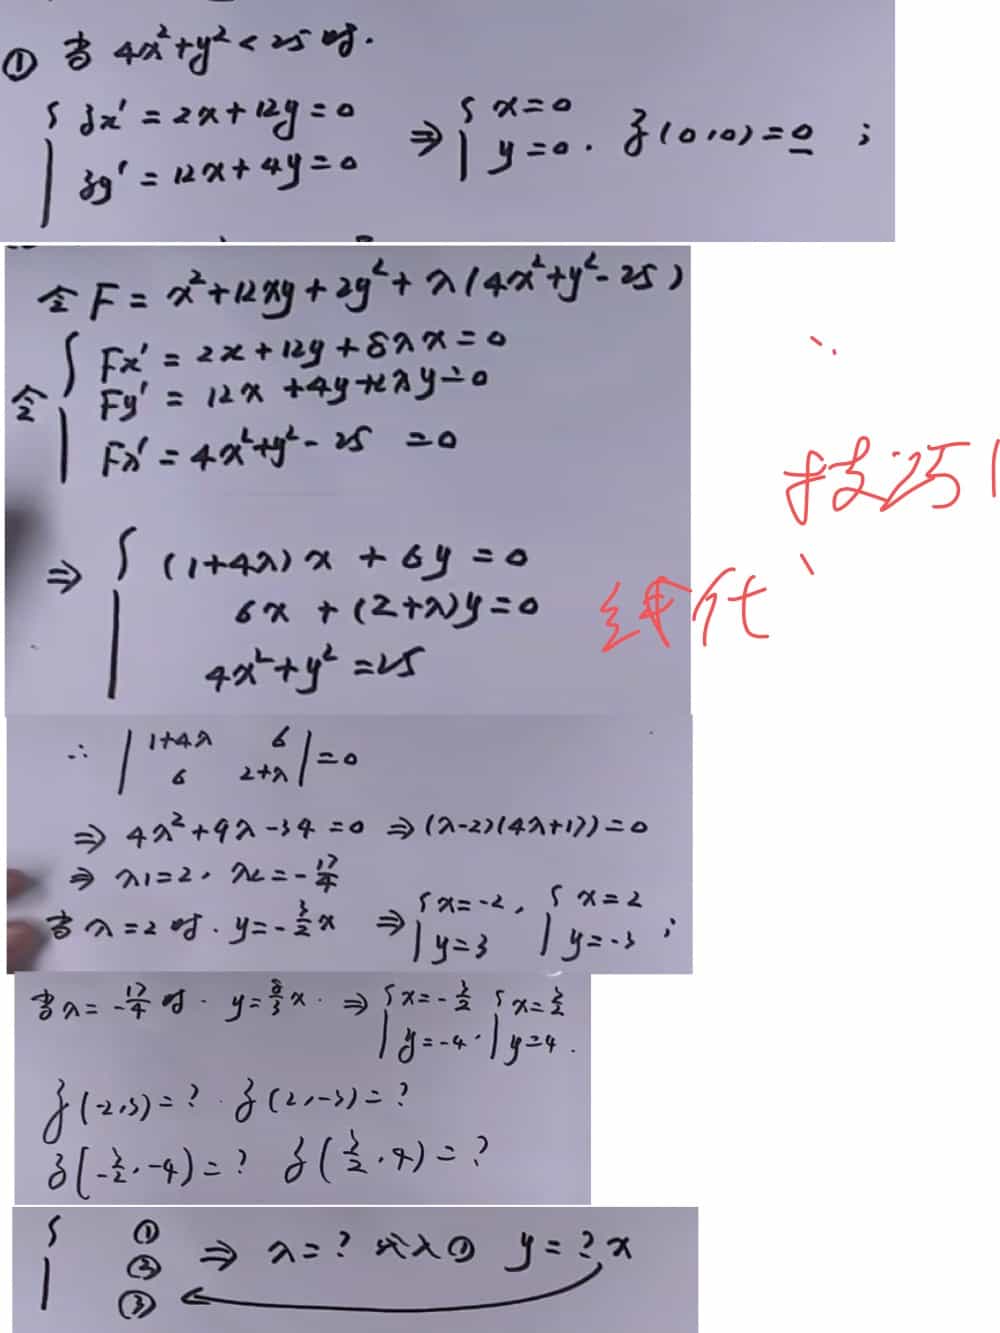 ① 当 4x²+y² < 25 时.
{ zx' = 2x+12y=0 ⇒ { x=0
zy' = 12x+4y=0 y=0. z(0,0)=0 ;
令 F = x²+12xy+2y²+λ(4x²+y²-25)
令 { Fx' = 2x+12y+8λx=0
Fy' = 12x+4y+2λy=0
Fλ' = 4x²+y²-25 =0
技巧
⇒ { (1+4λ)x + 6y = 0
6x + (2+λ)y=0 线代
4x²+y²=25
∴ | 1+4λ 6 | =0
6 2+λ
⇒ 4λ²+9λ-34=0 ⇒(λ-2)(4λ+17)=0
⇒ λ1=2, λ2=-17/4
当 λ=2 时. y=-3/2x ⇒ { x=-2, { x=2
y=3 y=-3 ;
当λ=-17/4 时. y=8/3x. ⇒ { x=-3/2 { x=3/2
y=-4. y=4.
z(-2,3)=? . z(2,-3)=?
z(-3/2,-4)=? z(3/2,4)=?
{ ①
② ⇒ λ=? 代入① y=?x
③